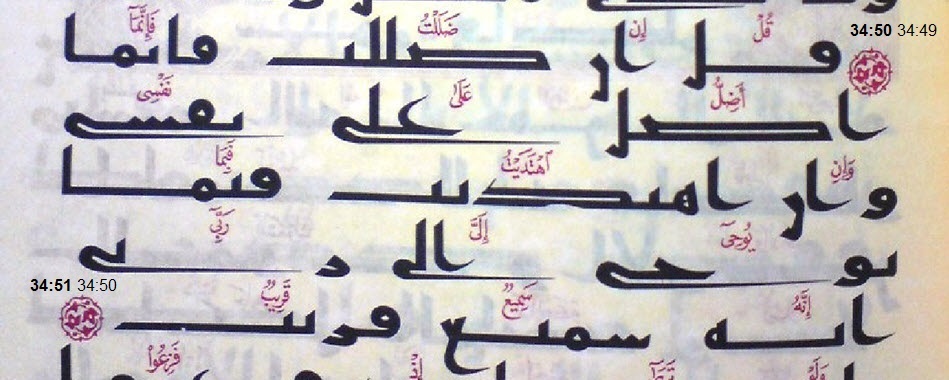 34:50 34:49
قُلْ إِن ضَلَلْتُ فَإِنَّمَآ
قل ان ضللت فانما
أَضِلُّ عَلَىٰ نَفْسِى
اضل على نفسى
وَإِنِ ٱهْتَدَيْتُ فَبِمَا
وان اهتديت فبما
يُوحِىٓ إِلَىَّ رَبِّىٓ
يوحى الى ربى
34:51 34:50
إِنَّهُۥ سَمِيعٌ قَرِيبٌ
انه سميع قريب
وَلَوْ تَرَىٰٓ إِذْ فَزِعُوا۟